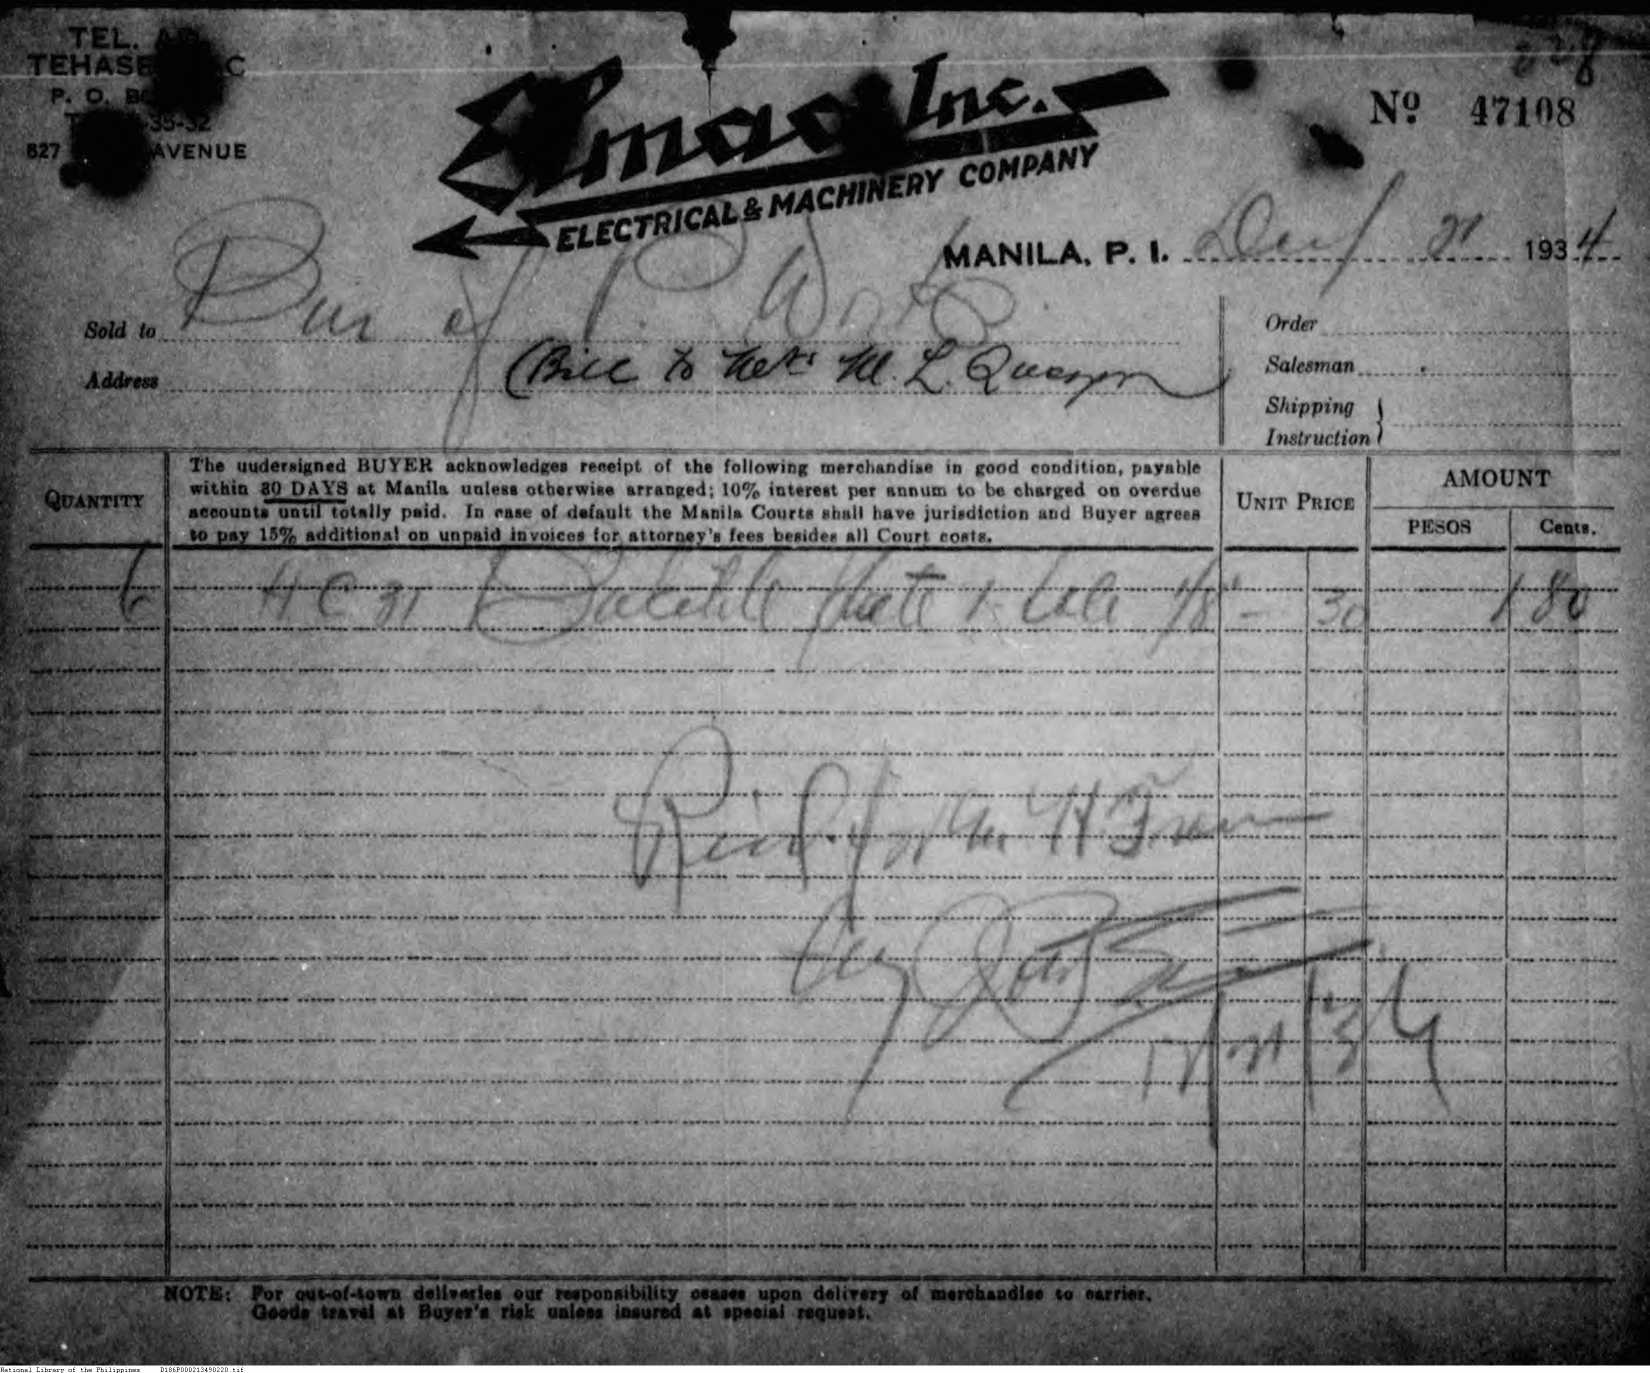 TEL.
P. O.
35-32
627 AVENUE
Elmac Inc.
ELECTRICAL & MACHINERY COMPANY
Nº 47108
MANILA, P. I. Dec/ 21 1934
Sold to Bur of P. Works
Address (Bill to Mrs M. L. Quezon)
Order
Salesman
Shipping
Instruction
QUANTITY
The uudersigned BUYER acknowledges receipt of the following merchandise in good condition, payable
within 30 DAYS at Manila unless otherwise arranged; 10% interest per annum to be charged on overdue
accounts until totally paid. In case of default the Manila Courts shall have jurisdiction and Buyer agrees
to pay 15% additional on unpaid invoices for attorney's fees besides all Court costs.
UNIT PRICE
AMOUNT
PESOS Cents.
6 HC 31 Bakelite plate 1 hole 1/8" - 30 1 80
Recd. for Mr. H.
by
12/21/34
NOTE: For out-of-town deliveries our responsibility ceases upon delivery of merchandise to carrier.
Goods travel at Buyer's risk unless insured at special request.
National Library of the Philippines D186P000213490220.tif